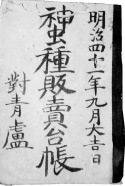 明治四十一年九月大吉日
䘉種販賣台帳
對青盧